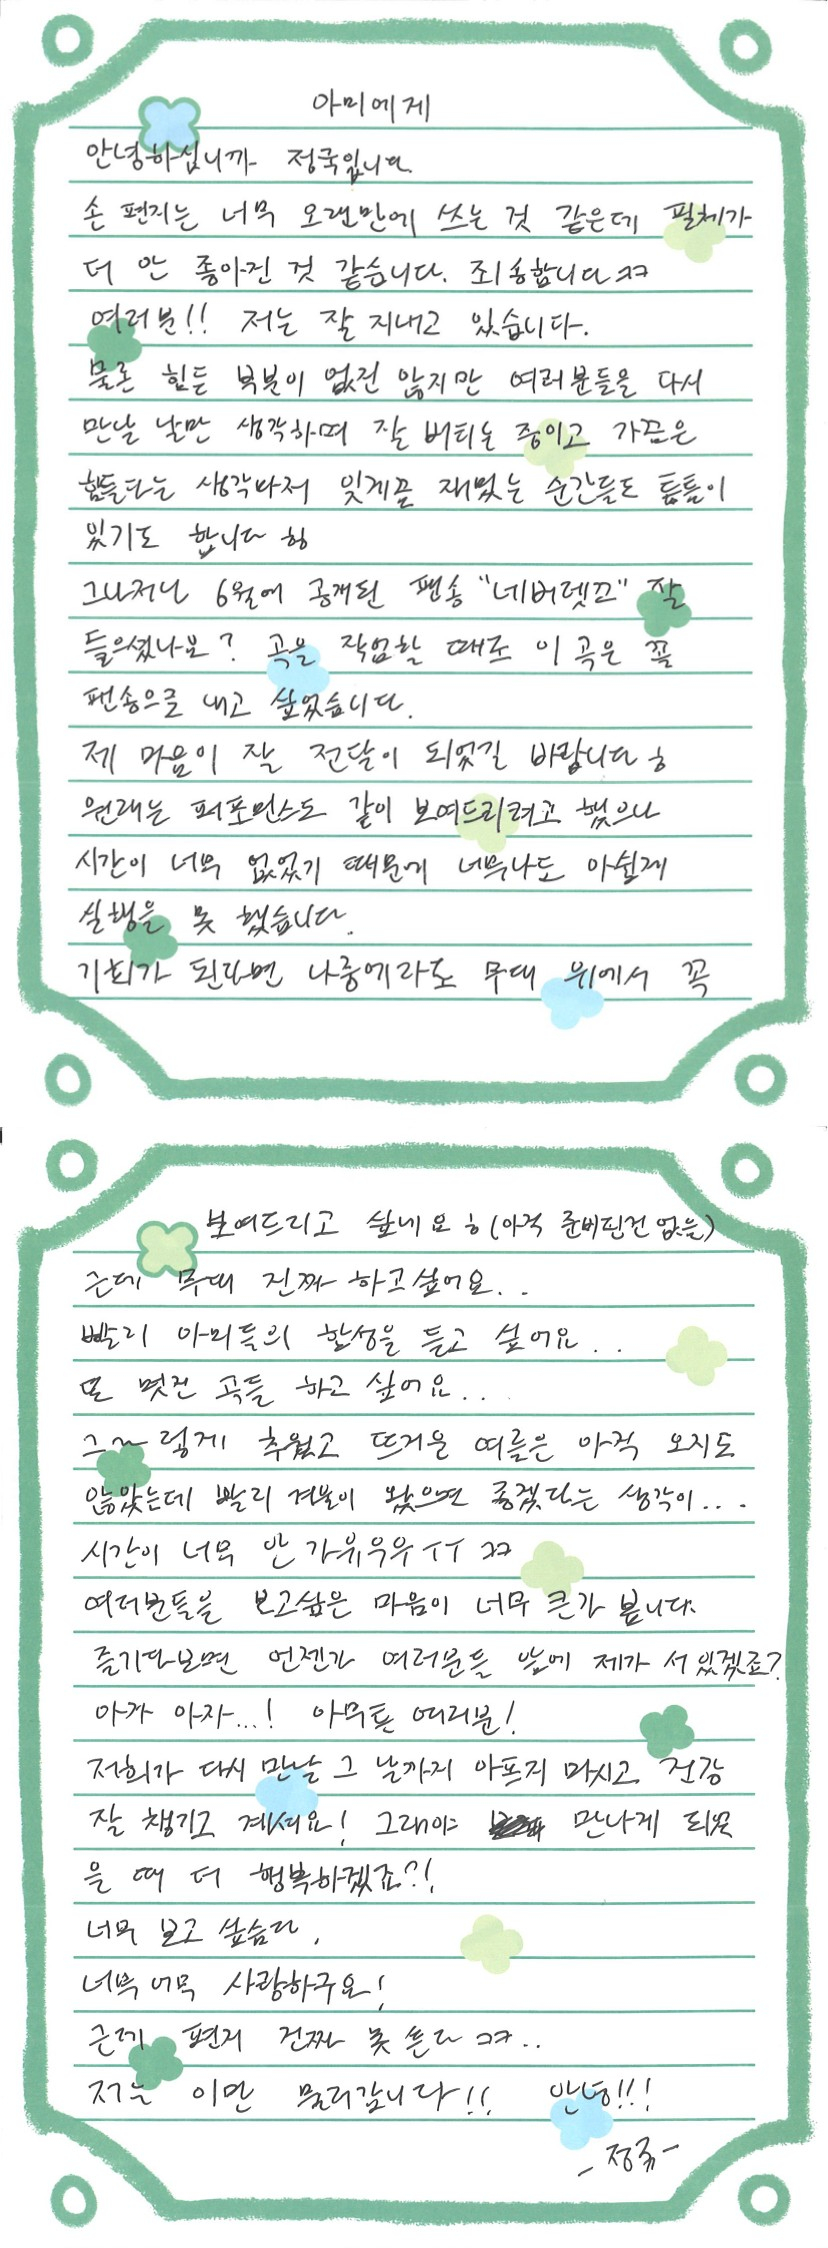 아미에게
안녕하십니까 정국입니다.
손 편지는 너무 오랜만에 쓰는 것 같은데 필체가
더 안 좋아진 것 같습니다. 죄송합니다ㅋㅋ
여러분!! 저는 잘 지내고 있습니다.
물론 힘든 부분이 없진 않지만 여러분들을 다시
만날 날만 생각하며 잘 버티는 중이고 가끔은
힘들다는 생각마저 잊게끔 재밌는 순간들도 틈틈이
있기도 합니다 ㅎㅎ
그나저나 6월에 공개된 팬송 "네버렛고" 잘
들으셨나요? 곡을 작업할 때부터 이 곡은 꼭
팬송으로 내고 싶었습니다.
제 마음이 잘 전달이 되었길 바랍니다 ㅎ
원래는 퍼포먼스도 같이 보여드리려고 했으나
시간이 너무 없었기 때문에 너무나도 아쉽게
실행을 못 했습니다.
기회가 된다면 나중에라도 무대 위에서 꼭
보여드리고 싶네요 ㅎ (아직 준비된건 없음)
근데 무대 진짜 하고싶어요..
빨리 아미들의 함성을 듣고 싶어요..
또 멋진 곡들 하고 싶어요...
그~렇게 추웠고 뜨거운 여름은 아직 오지도
않았는데 빨리 겨울이 왔으면 좋겠다는 생각이...
시간이 너무 안 가유우우ㅜㅜ ㅋㅋ
여러분들을 보고싶은 마음이 너무 큰가 봅니다.
즐기다보면 언젠가 여러분들 앞에 제가 서 있겠죠?
아자 아자...! 아무튼 여러분!
저희가 다시 만날 그 날까지 아프지 마시고 건강
잘 챙기고 계세요! 그래야 만나게 되었
을 때 더 행복하겠죠?!
너무 보고 싶슴다.
너무너무 사랑하구요!
근데 편지 진짜 못 쓴다 ㅋㅋ..
저는 이만 물러갑니다!! 안녕!!!
-정국-